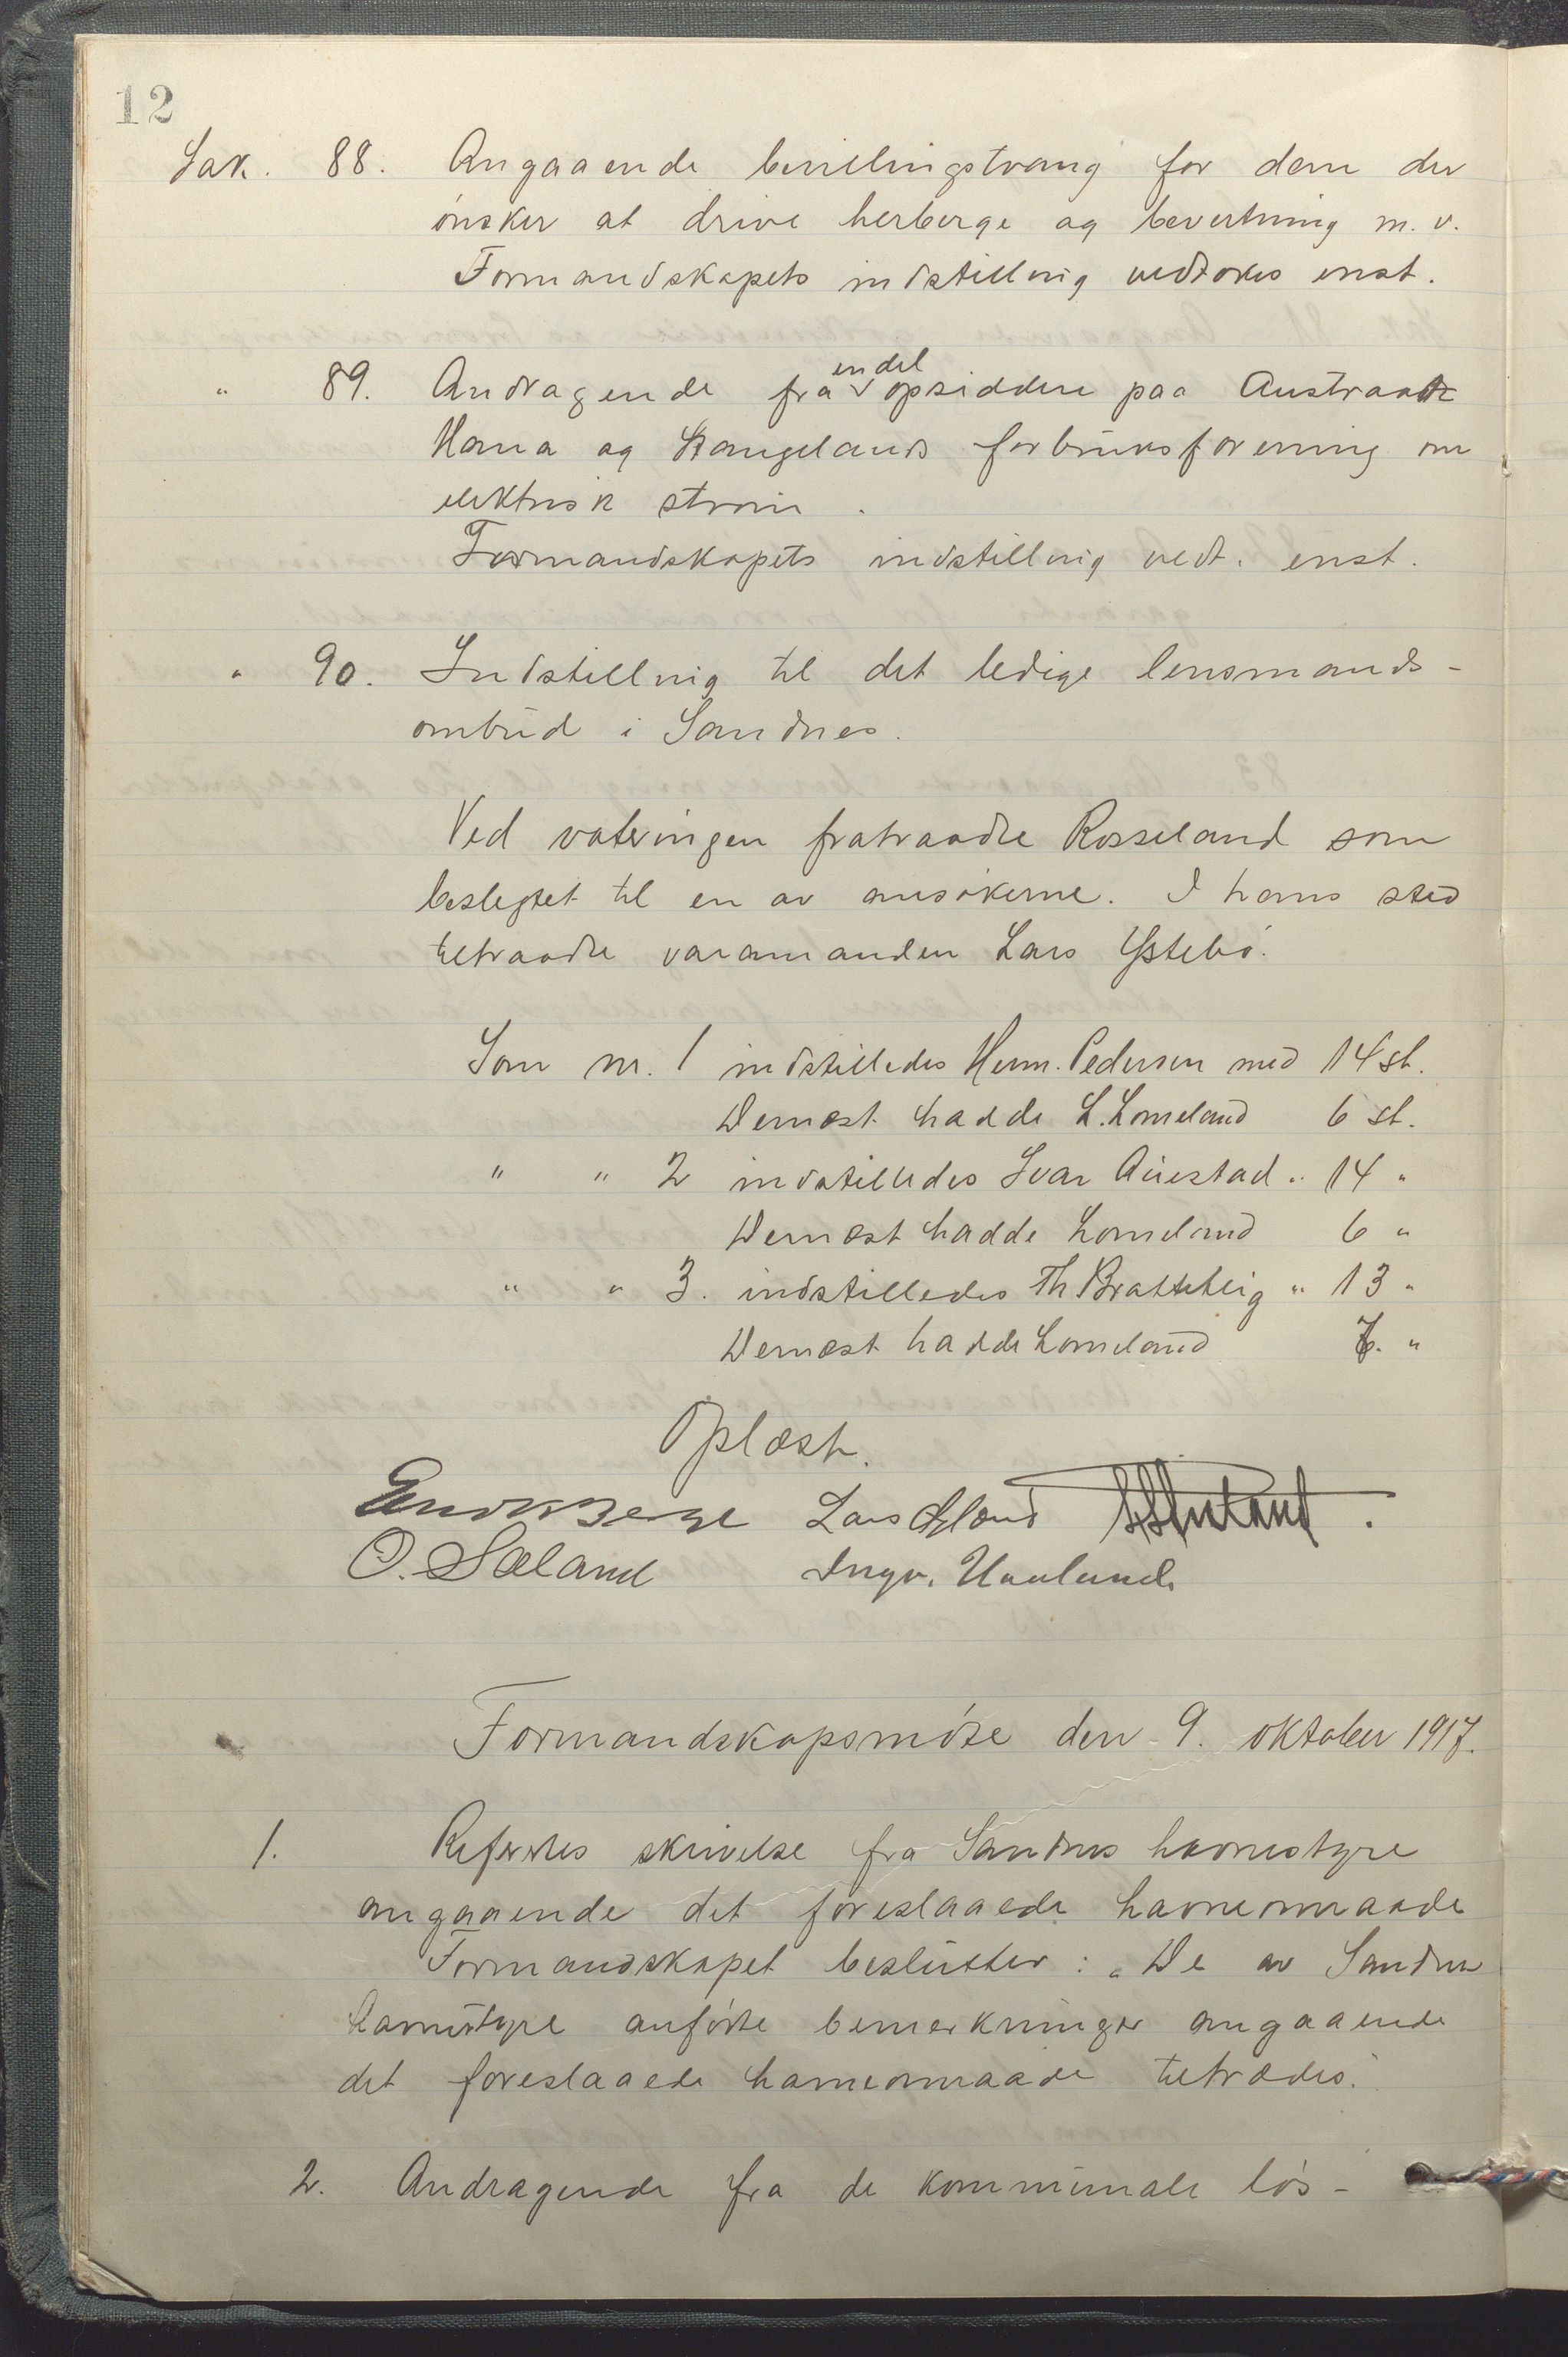 12
Sak. 88. Angaaende bevilingstvang for dem der
ønsker at drive herberge og bevertning m.v.
Formandskapets indstilling vedtokes enst.
" 89. Andragende fra endel opsiddere paa Austraat
Hana og Stangelands forbruksforening om
elektrisk strøm.
Formandskapets indstilling vedt. enst.
" 90. Indstilling til det ledige lensmands-
ombud i Sandnes.
Ved voteringen fratraadte Rosseland som
beslegtet til en av ansøkerne. I hans sted
tiltraadte varamanden Lars Ystebø.
Som nr. 1 indstilledes Herm. Pedersen med 14 st.
Dernæst hadde L. Lomeland 6 st.
" " 2 indstilledes Ivar Auestad " 14 "
Dernæst hadde Lomeland 6 "
" " 3. indstilledes Th Bratteteig " 13 "
Dernæst hadde Lomeland 7. "
Oplæst.
Lars
O. Sæland Ingv. Haaland
Formandskapsmøte den 9. oktober 1917.
1. Refertes skrivelse fra Sandnes havnestyre
angaaende det foreslaaede havneomraade
Formandskapet beslutter: "De av Sandnes
havnestyre anførte bemerkninger angaaende
det foreslaaede havneomraade tiltrædes."
2. Andragende fra de kommunale løs-